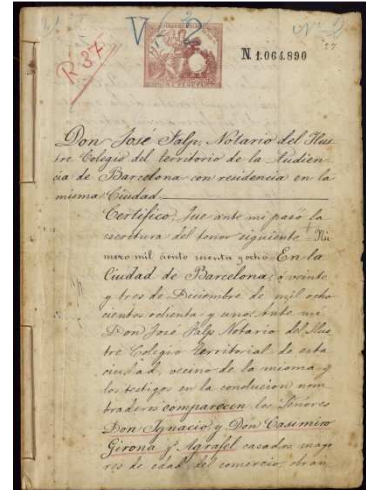 V 2
R 37
27
N. 1.064.890
Don José Falp, Notario del Ilus-
tre Colegio del territorio de la Audien-
cia de Barcelona con residencia en la
misma Ciudad.
Certifico: que ante mi pasó la
escritura del tenor siguiente "Nú-
mero mil ciento
Ciudad de Barcelona, á veinte
y tres de Diciembre de mil ocho-
cientos ochenta y uno: Ante mi
Don José Falp Notario del Ilus-
tre Colegio Territorial de esta
ciudad, vecino de la misma y
los testigos en la conclusion nom-
braderos comparecen los Señores
Don Ignacio y Don Casimiro
Girona y Agrafel casados mayo-
res de edad, del comercio,